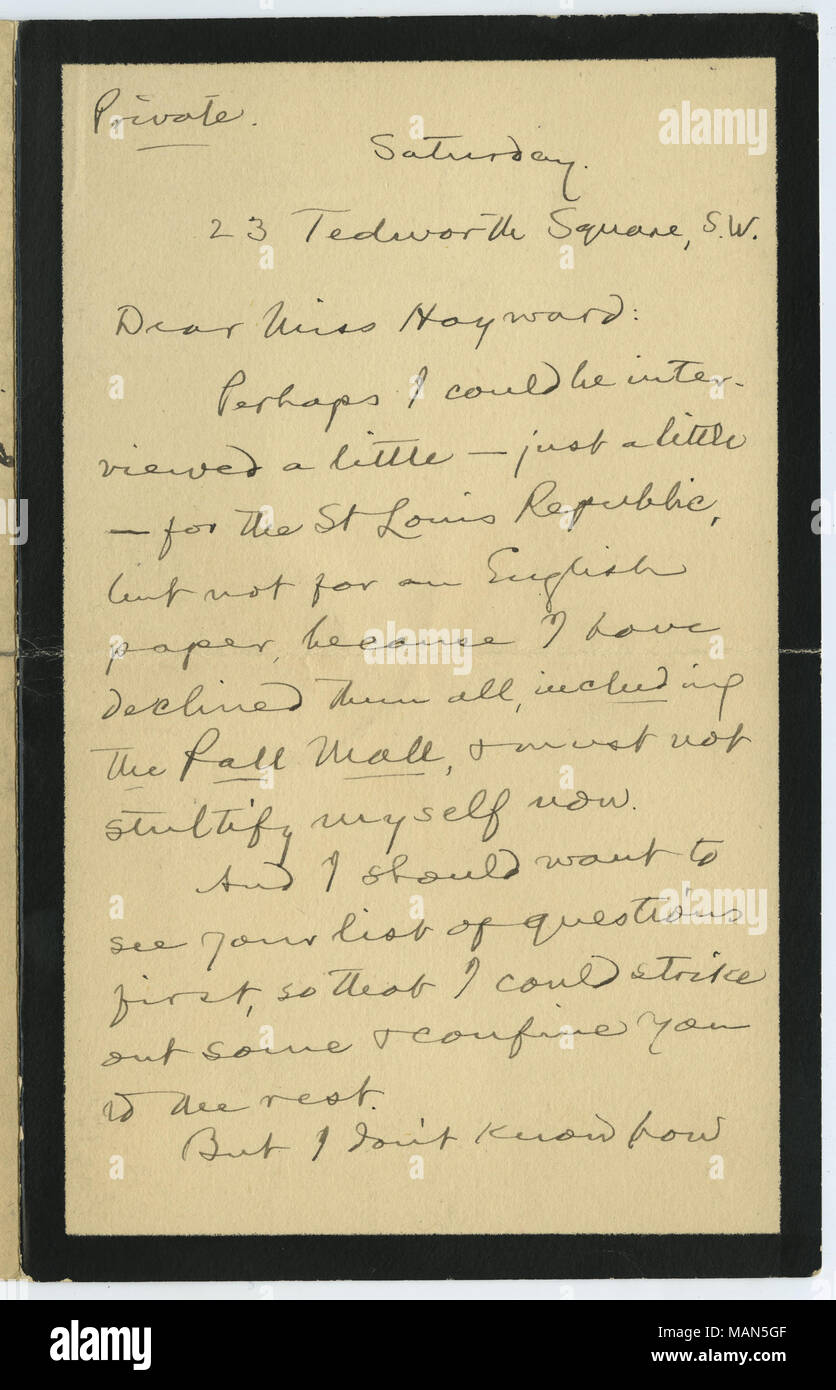 Private.
Saturday.
23 Tedworth Square, S.W.
Dear Miss Hayward:
Perhaps I could be inter-
viewed a little — just a little
— for the St Louis Republic,
but not for an English
paper, because I have
declined them all, including
the Pall Mall, & must not
stultify myself now.
And I should want to
see your list of questions
first, so that I could strike
out some & confine you
to the rest.
But I don't know how
alamy
a
alamy stock photo
MAN5GF
www.alamy.com